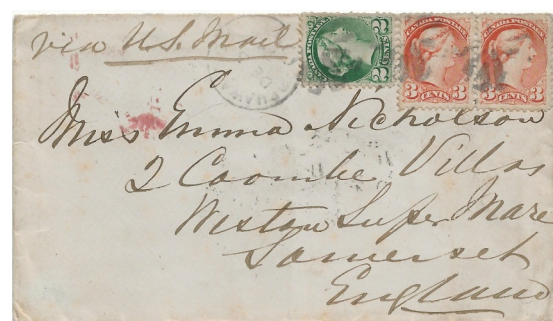 via U.S. Mail
CANADA POSTAGE
2 CENTS 2
CANADA POSTAGE
3 CENTS 3
CANADA POSTAGE
3 CENTS 3
Miss Emma Nicholson
2 Coombe Villas
Weston Super Mare
Somerset
England